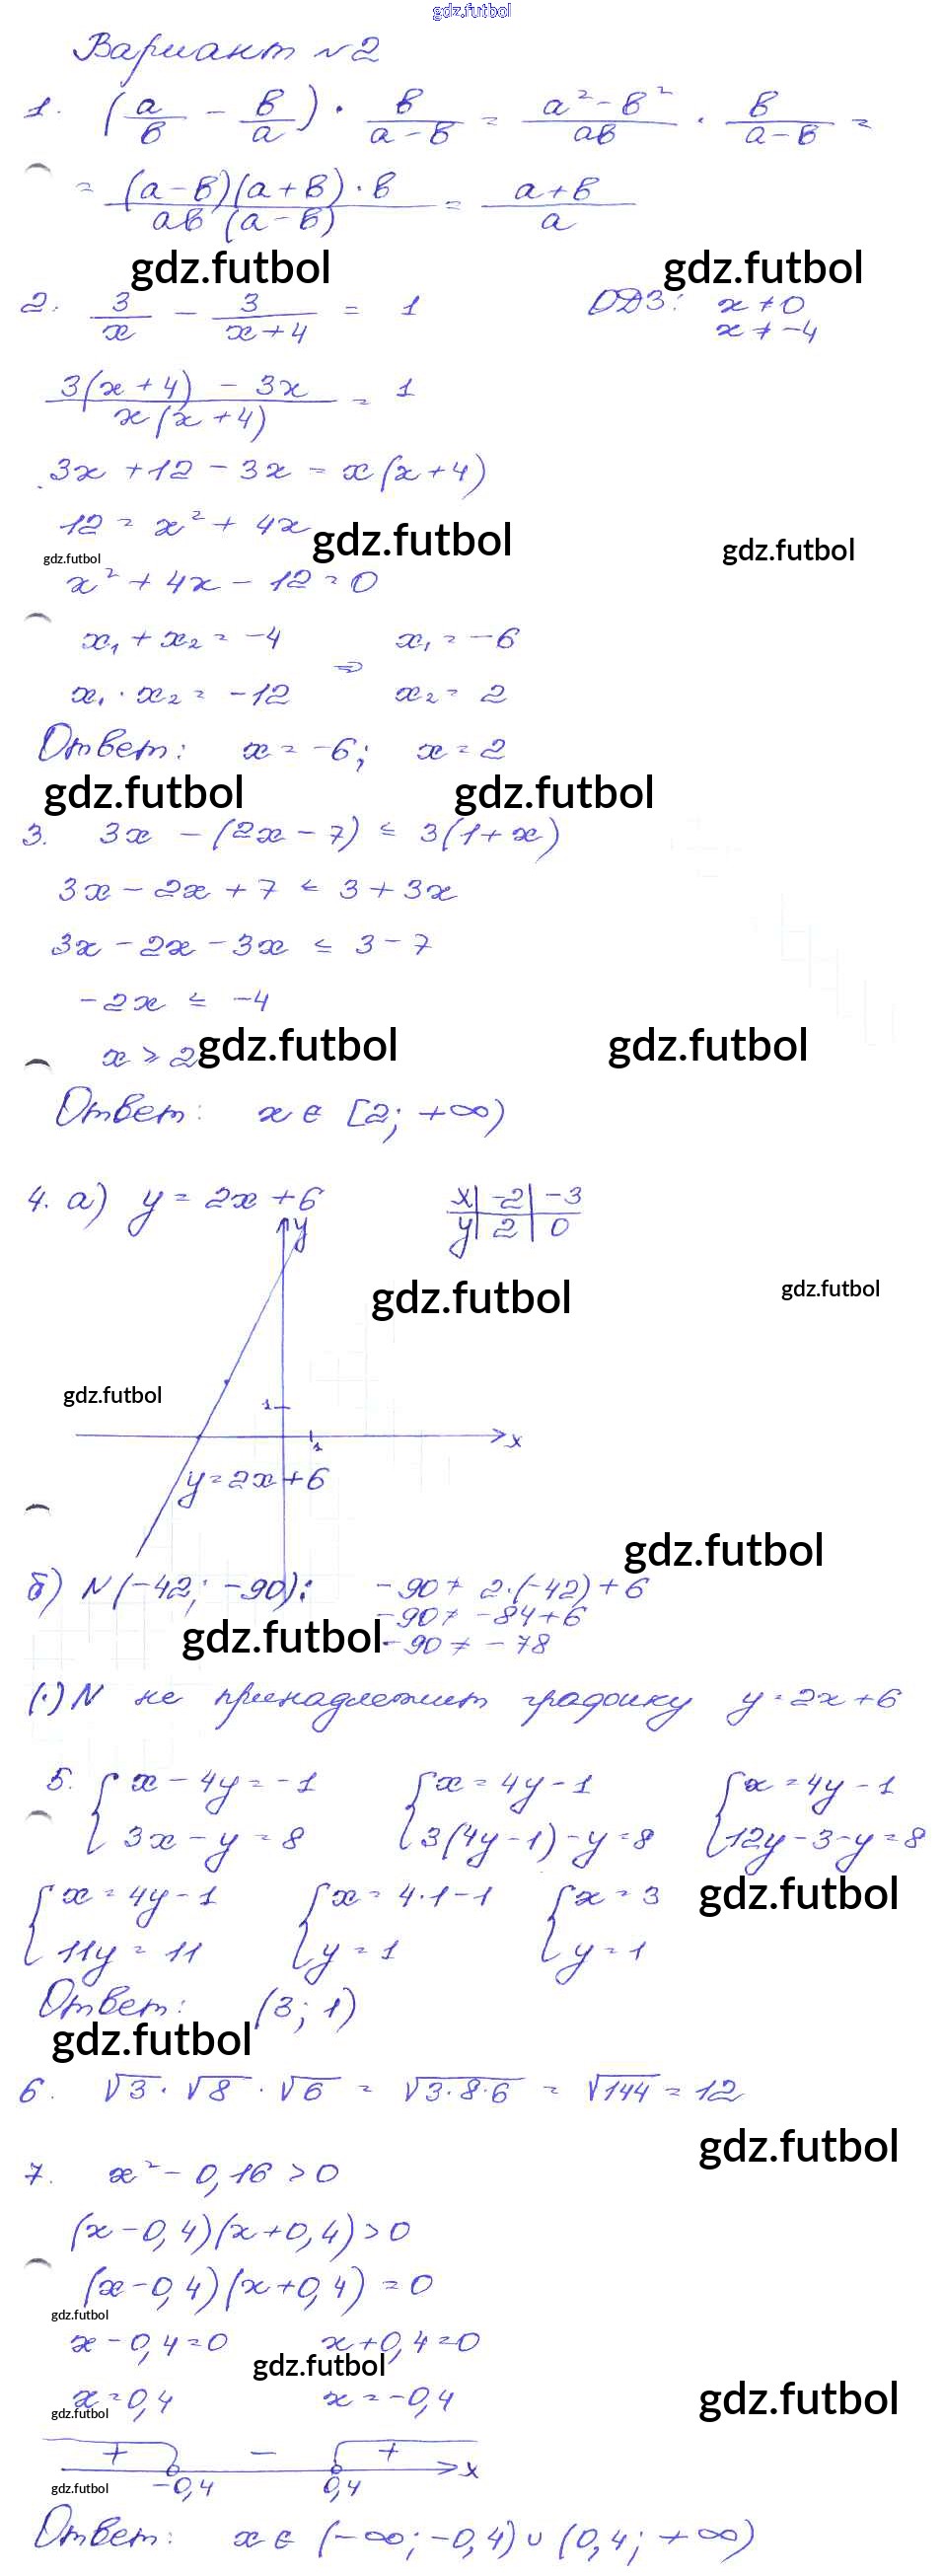 gdz.futbol
Вариант №2
1. (a/в - в/a) · в/(a-в) = (a²-в²)/(aв) · в/(a-в) =
= ((a-в)(a+в)·в)/(aв(a-в)) = (a+в)/a
gdz.futbol gdz.futbol
2. 3/x - 3/(x+4) = 1 ОДЗ: x≠0
x≠-4
(3(x+4) - 3x)/(x(x+4)) = 1
3x+12-3x = x(x+4)
12 = x²+4x gdz.futbol gdz.futbol
gdz.futbol
x²+4x-12=0
x₁+x₂=-4 x₁=-6
⇒
x₁·x₂=-12 x₂=2
Ответ: x=-6; x=2
gdz.futbol gdz.futbol
3. 3x-(2x-7) ≤ 3(1+x)
3x-2x+7 ≤ 3+3x
3x-2x-3x ≤ 3-7
-2x ≤ -4
x ≥ 2 gdz.futbol gdz.futbol
Ответ: x ∈ [2; +∞)
4. а) y=2x+6 x | -2 | -3
y | 2 | 0
y
gdz.futbol gdz.futbol
gdz.futbol 1
1 x
y=2x+6
gdz.futbol
б) N(-42; -90): -90 ≠ 2·(-42)+6
-90 ≠ -84+6
gdz.futbol -90 ≠ -78
(·) N не принадлежит графику y=2x+6
5. { x-4y=-1 { x=4y-1 { x=4y-1
3x-y=8 3(4y-1)-y=8 12y-3-y=8
{ x=4y-1 { x=4·1-1 { x=3 gdz.futbol
11y=11 y=1 y=1
Ответ: (3; 1)
gdz.futbol
6. √3·√8·√6 = √3·8·6 = √144 = 12
gdz.futbol
7. x²-0,16>0
(x-0,4)(x+0,4)>0
(x-0,4)(x+0,4)=0
gdz.futbol
x-0,4=0 x+0,4=0
gdz.futbol
x=0,4 x=-0,4 gdz.futbol
gdz.futbol
+ - +
x
gdz.futbol -0,4 0,4
Ответ: x ∈ (-∞; -0,4) ∪ (0,4; +∞)